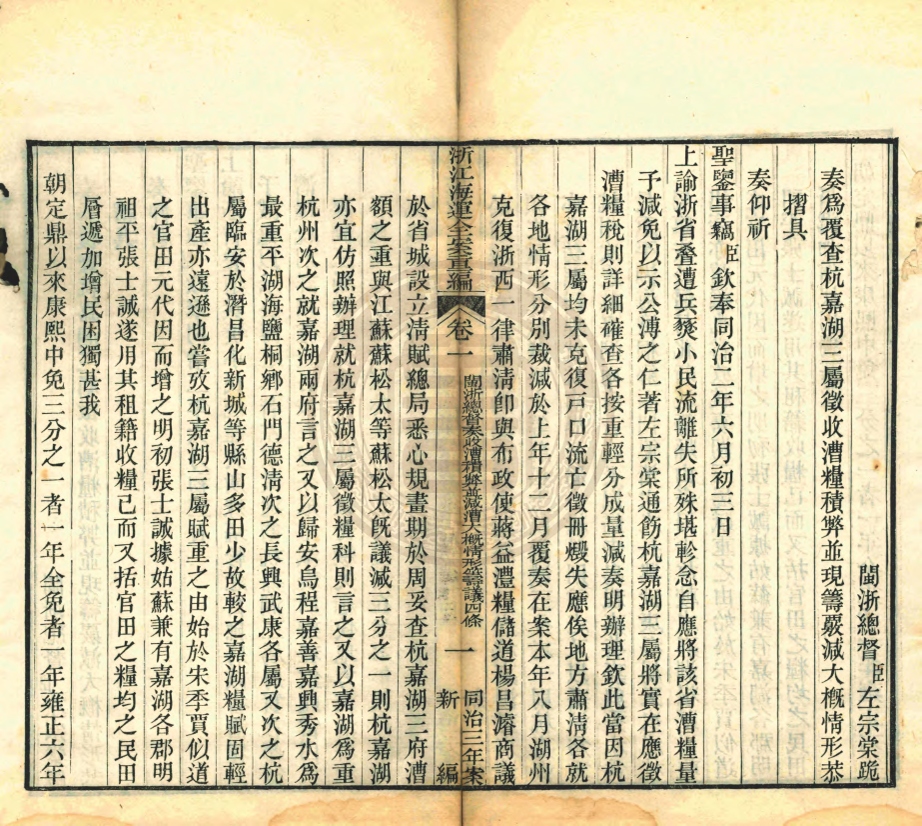 閩浙總督臣左宗棠跪
奏爲覆查杭嘉湖三屬徵收漕糧積弊並現籌覈減大概情形恭
摺具
奏仰祈
聖鑒事竊臣欽奉同治二年六月初三日
上諭浙省叠遭兵燹小民流離失所殊堪軫念自應將該省漕糧量
予減免以示公溥之仁著左宗棠通飭杭嘉湖三屬將實在應徵
漕糧稅則詳細確查各按重輕分成量減奏明辦理欽此當因杭
嘉湖三屬均未克復戸口流亡徵冊燬失應俟地方肅清各就
各地情形分別裁減於上年十二月覆奏在案本年八月湖州
克復浙西一律肅清卽與布政使蔣益澧糧儲道楊昌濬商議
浙江海運全案重編
卷一
閩浙總督奏收漕積弊並減漕大概情形籌議四條
一
同治三年案
新編
於省城設立清賦總局悉心規畫期於周妥查杭嘉湖三府漕
額之重與江蘇蘇松太等蘇松太旣議減三分之一則杭嘉湖
亦宜仿照辦理就杭嘉湖三屬徵糧科則言之又以嘉湖爲重
杭州次之就嘉湖兩府言之又以歸安烏程嘉善嘉興秀水爲
最重平湖海鹽桐鄉石門德清次之長興武康各屬又次之杭
屬臨安於潛昌化新城等縣山多田少故較之嘉湖糧賦固輕
出產亦遠遜也嘗攷杭嘉湖三屬賦重之由始於宋季賈似道
之官田元代因而增之明初張士誠據姑蘇兼有嘉湖各郡明
祖平張士誠遂用其租籍收糧已而又括官田之糧均之民田
層遞加增民困獨甚我
朝定鼎以來康熙中免三分之一者一年全免者一年雍正六年